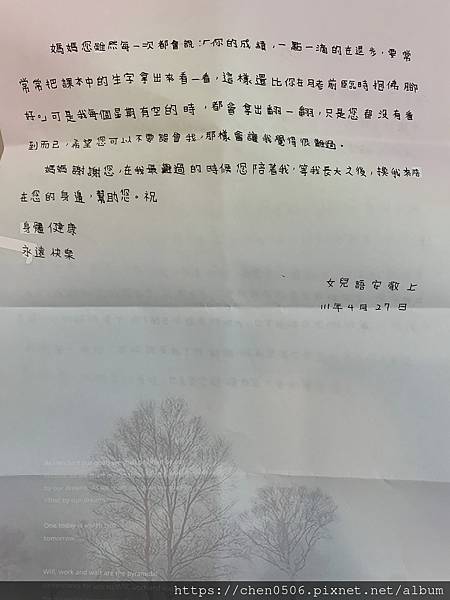 媽媽您雖然每一次都會說:「你的成績,一點一滴的在退步,要常
常常把課本中的生字拿出來看一看,這樣還比你在月考前臨時抱佛腳
好。」可是我每個星期有空的時,都會拿出翻一翻,只是您都沒有看
到而已,希望您可以不要誤會我,那樣會讓我覺得很難過。
媽媽謝謝您,在我最難過的時候您陪著我,等我長大之後,換我陪
在您的身邊,幫助您。祝
身體健康
永遠快樂
女兒語安敬上
111年4月27日
One today is worth two
tomorrow
Will, work and wait are the pyramidal
https://chen0506.pixnet.net/album